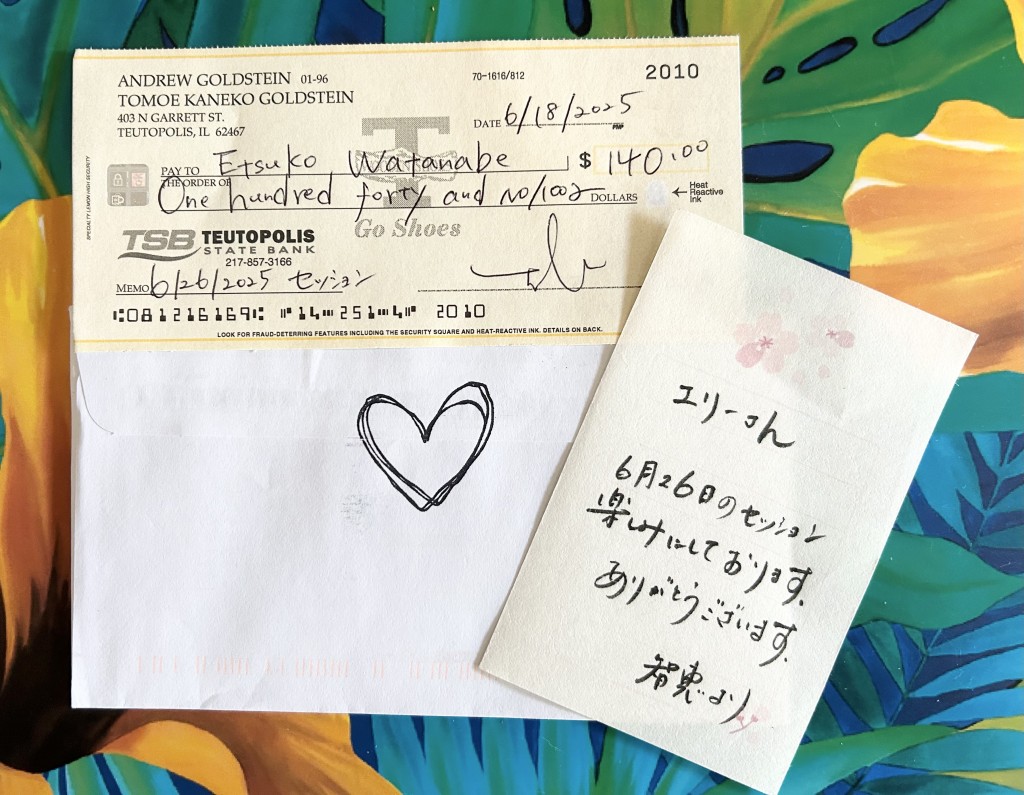 ANDREW GOLDSTEIN 01-96
TOMOE KANEKO GOLDSTEIN
403 N GARRETT ST.
TEUTOPOLIS, IL 62467
70-1616/812
2010
DATE 6/18/2025
PAY TO THE ORDER OF Etsuko Watanabe $ 140.00
One hundred forty and no/100 DOLLARS
Heat Reactive Ink
SPECIALTY LEMON HIGH SECURITY
TSB TEUTOPOLIS
STATE BANK
217-857-3166
T
Go Shoes
MEMO 6/26/2025 セッション
⑆081216169⑆ ⑈14⑉251⑉4⑈ 2010
LOOK FOR FRAUD-DETERRING FEATURES INCLUDING THE SECURITY SQUARE AND HEAT-REACTIVE INK. DETAILS ON BACK.
ユリーさん
6月26日のセッション
楽しみにしております。
ありがとうございます。
智恵より